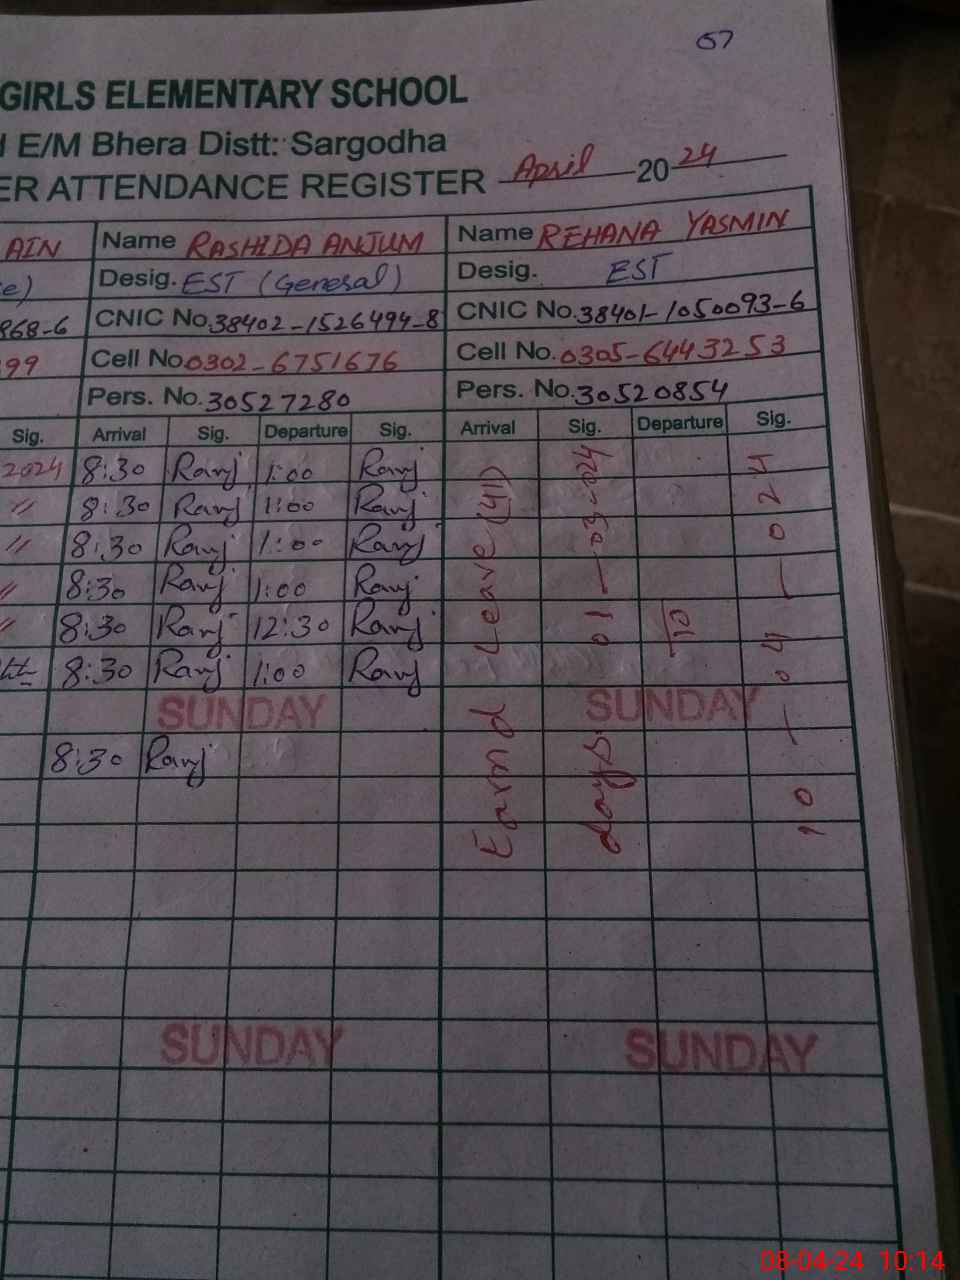 67
GIRLS ELEMENTARY SCHOOL
E/M Bhera Distt: Sargodha
ER ATTENDANCE REGISTER April 2024
AIN Name RASHIDA ANJUM Name REHANA YASMIN
e) Desig. EST (General) Desig. EST
868-6 CNIC No. 38402-1526494-8 CNIC No. 38401-1050093-6
99 Cell No. 0302-6751676 Cell No. 0305-6443253
Pers. No. 30527280 Pers. No. 30520854
Sig. Arrival Sig. Departure Sig. Arrival Sig. Departure Sig.
2024 8:30 Ranj 1:00 Ranj
" 8:30 Ranj 1:00 Ranj
" 8:30 Ranj 1:00 Ranj
" 8:30 Ranj 1:00 Ranj
" 8:30 Ranj 12:30 Ranj
8:30 Ranj 1:00 Ranj
SUNDAY SUNDAY
8:30 Ranj
Earnd Leave (41)
days 01-03-2024
To
10-04-2024
SUNDAY SUNDAY
08-04-24 10:14